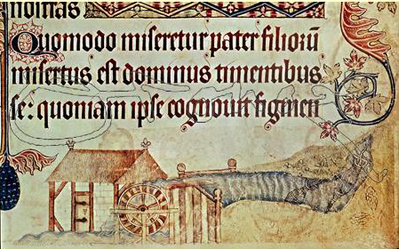 nomas
Quomodo miseretur pater filioꝝ̄
misertus est dominus timentibus
se: quoniam ipse cognouit figmen